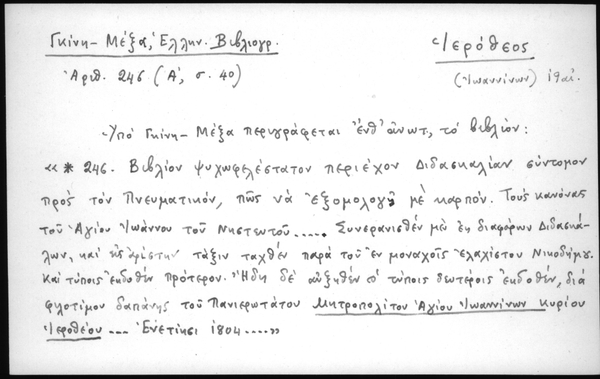 Γκίνη - Μέξα, Ἑλλην. Βιβλιογρ.
Ἱερόθεος
Ἀριθ. 246 (Α΄, σ. 40)
(Ἰωαννίνων) 19αἰ.
Ὑπό Γκίνη - Μέξα περιγράφεται ἔνθ' ἀνωτ, τό βιβλίον:
«* 246. Βιβλίον ψυχωφελέστατον περιέχον Διδασκαλίαν σύντομον
πρός τόν Πνευματικόν, πῶς νά ἐξομολογῇ μέ καρπόν. Τούς κανόνας
τοῦ Ἁγίου Ἰωάννου τοῦ Νηστευτοῦ..... Συνερανισθέν μέν ἐκ διαφόρων Διδασκά-
λων, καί εἰς ἀρίστην τάξιν ταχθέν παρά τοῦ ἐν μοναχοῖς ἐλαχίστου Νικοδήμου.
Καί τύποις ἐκδοθέν πρότερον. Ἤδη δέ αὐξηθέν τύποις δευτέροις ἐκδοθέν, διά
φιλοτίμου δαπάνης τοῦ Πανιερωτάτου Μητροπολίτου Ἁγίου Ἰωαννίνων Κυρίου
Ἱεροθέου --- Ἐνετίησι 1804.....»